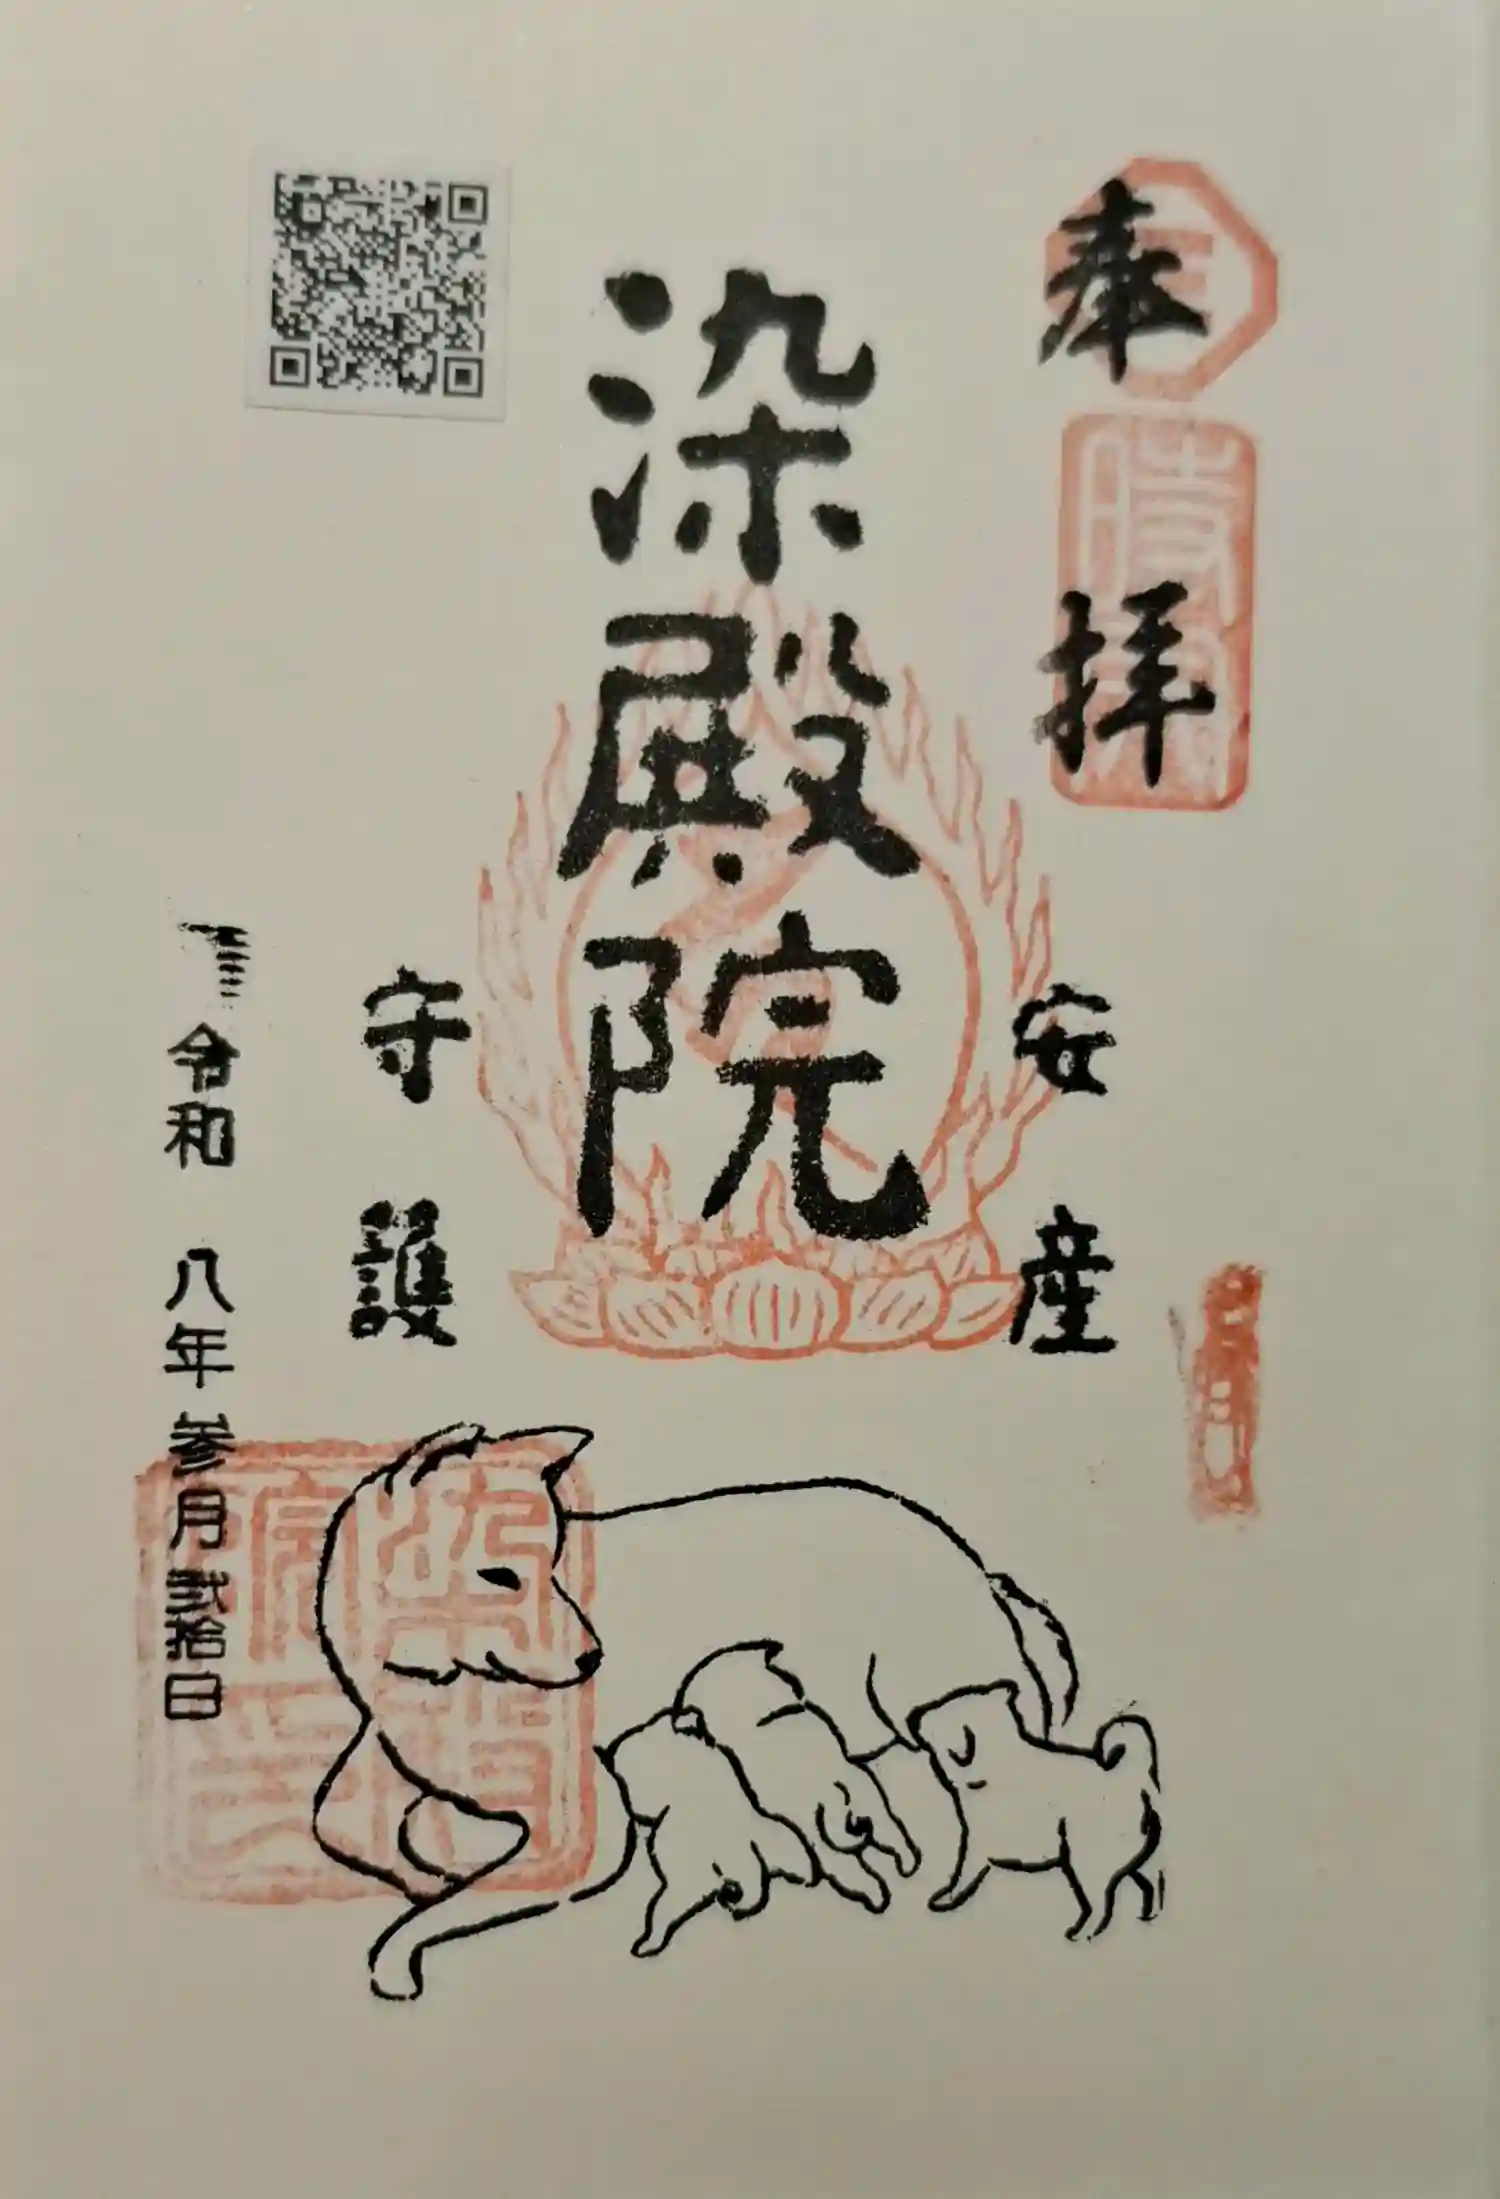 奉拝
安産
染殿院
守護
令和 八年参月弐拾日